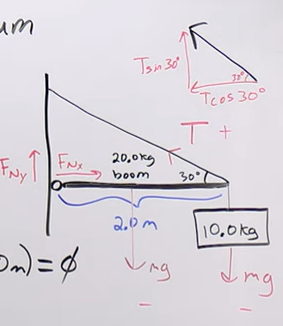 um
Tsin30°
30°
Tcos30°
T +
F_Ny
F_Nx
20.0kg
boom
30°
2.0 m
10.0kg
0m) = ϕ
mg
mg
-
-